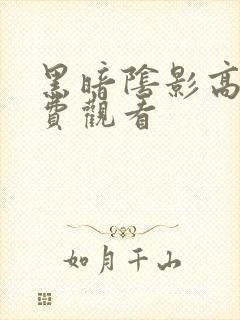 黑暗陰影高
費觀看
如月千山